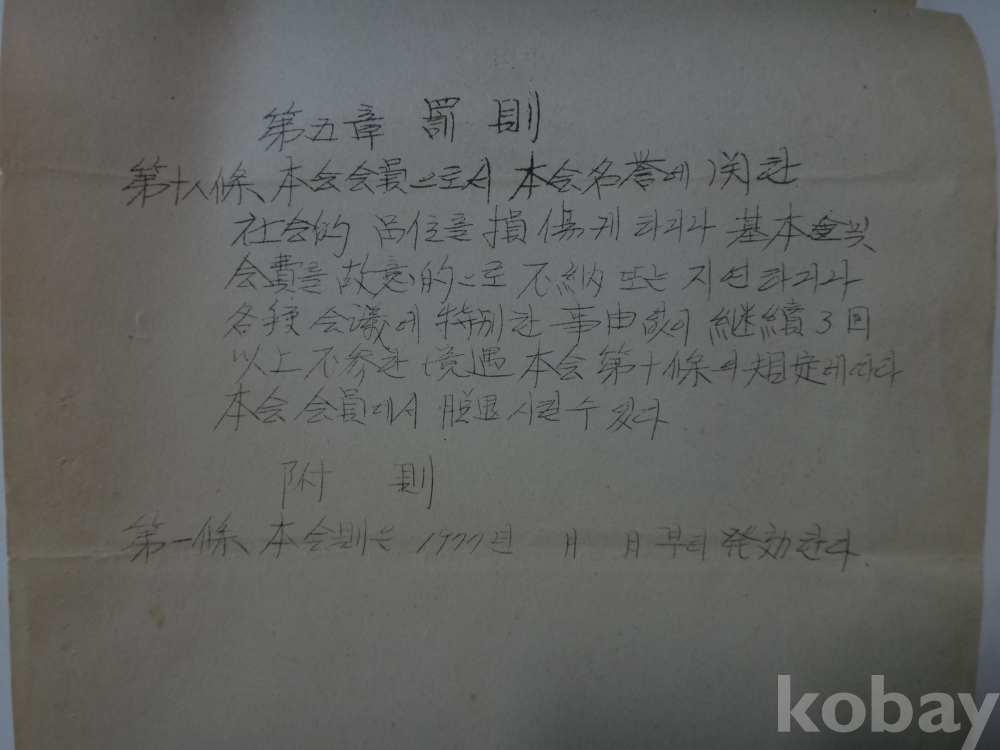 第五章 罰則
第十八條 本会会員으로서 本会名誉에 関한
社会的 品位를 損傷케 하거나 基本金및
会費를 故意的으로 不納 또는 지연하거나
各種 会議에 特別한 事由없이 継續 3回
以上 不参한 境遇 本会 第十條의 規定에따라
本会 会員에서 脫退 시킬 수 있다
附則
第一條 本会則은 1977년 月 日부터 発効한다.
kobay